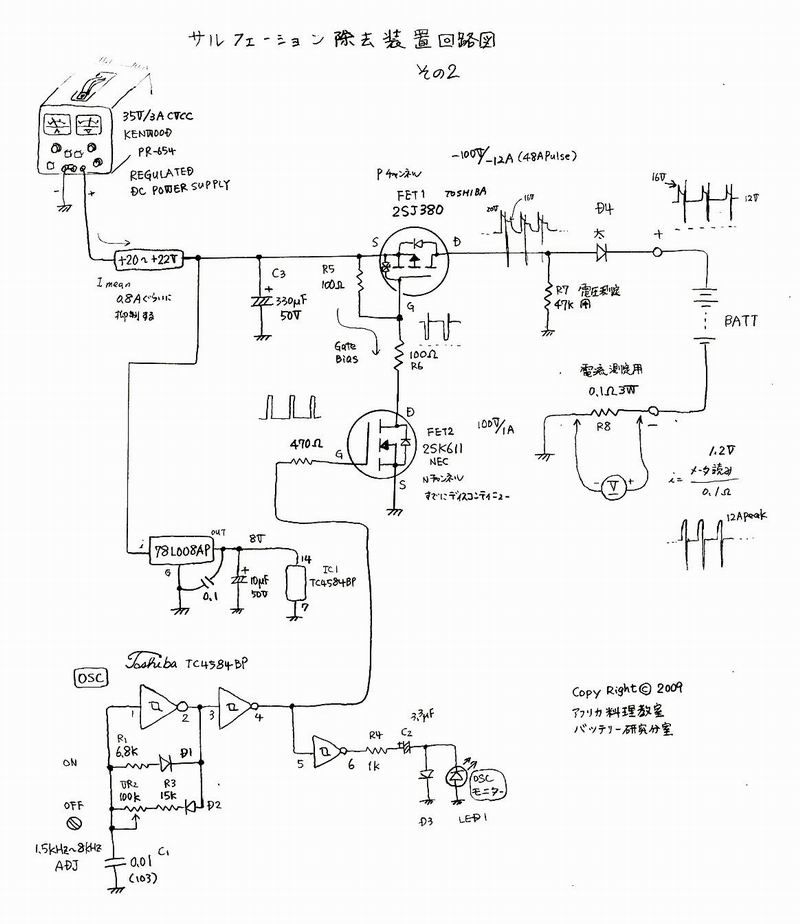 サルフェーション除去装置回路図
その2
35V/3A CVCC
KENWOOD
PR-654
REGULATED
DC POWER SUPPLY
-
+
+20~+22V
I mean
0.8Aぐらいに
抑制する
C3
+
330μF
50V
R5
100Ω
Pチャンネル
FET1 TOSHIBA
2SJ380
-100V/-12A (48APulse)
S
D
G
Gate
Bias
100Ω
R6
20V
16V
D4
+
16V
12V
R7 電圧測定用
47k
BATT
電流測定用
0.1Ω 3W
R8
-
- V +
1.2V
i= メータ読み
0.1Ω
12Apeak
470Ω
G
D
S
FET2 100V/1A
2SK611
NEC
Nチャンネル
すでにディスコンティニュー
i
78L008AP
OUT
G
0.1
8V
+
10μF
50V
14
IC1
TC4584BP
7
OSC
Toshiba TC4584BP
1
2
3
4
5
6
R1
6.8K
D1
ON
VR2
100k
R3
15K
D2
OFF
1.5KHz~8KHz
ADJ
0.01
C1
(103)
R4
1K
C2
3.3μF
D3
LED1
OSC
モニター
Copy Right © 2009
アフリカ料理教室
バッテリー研究分室